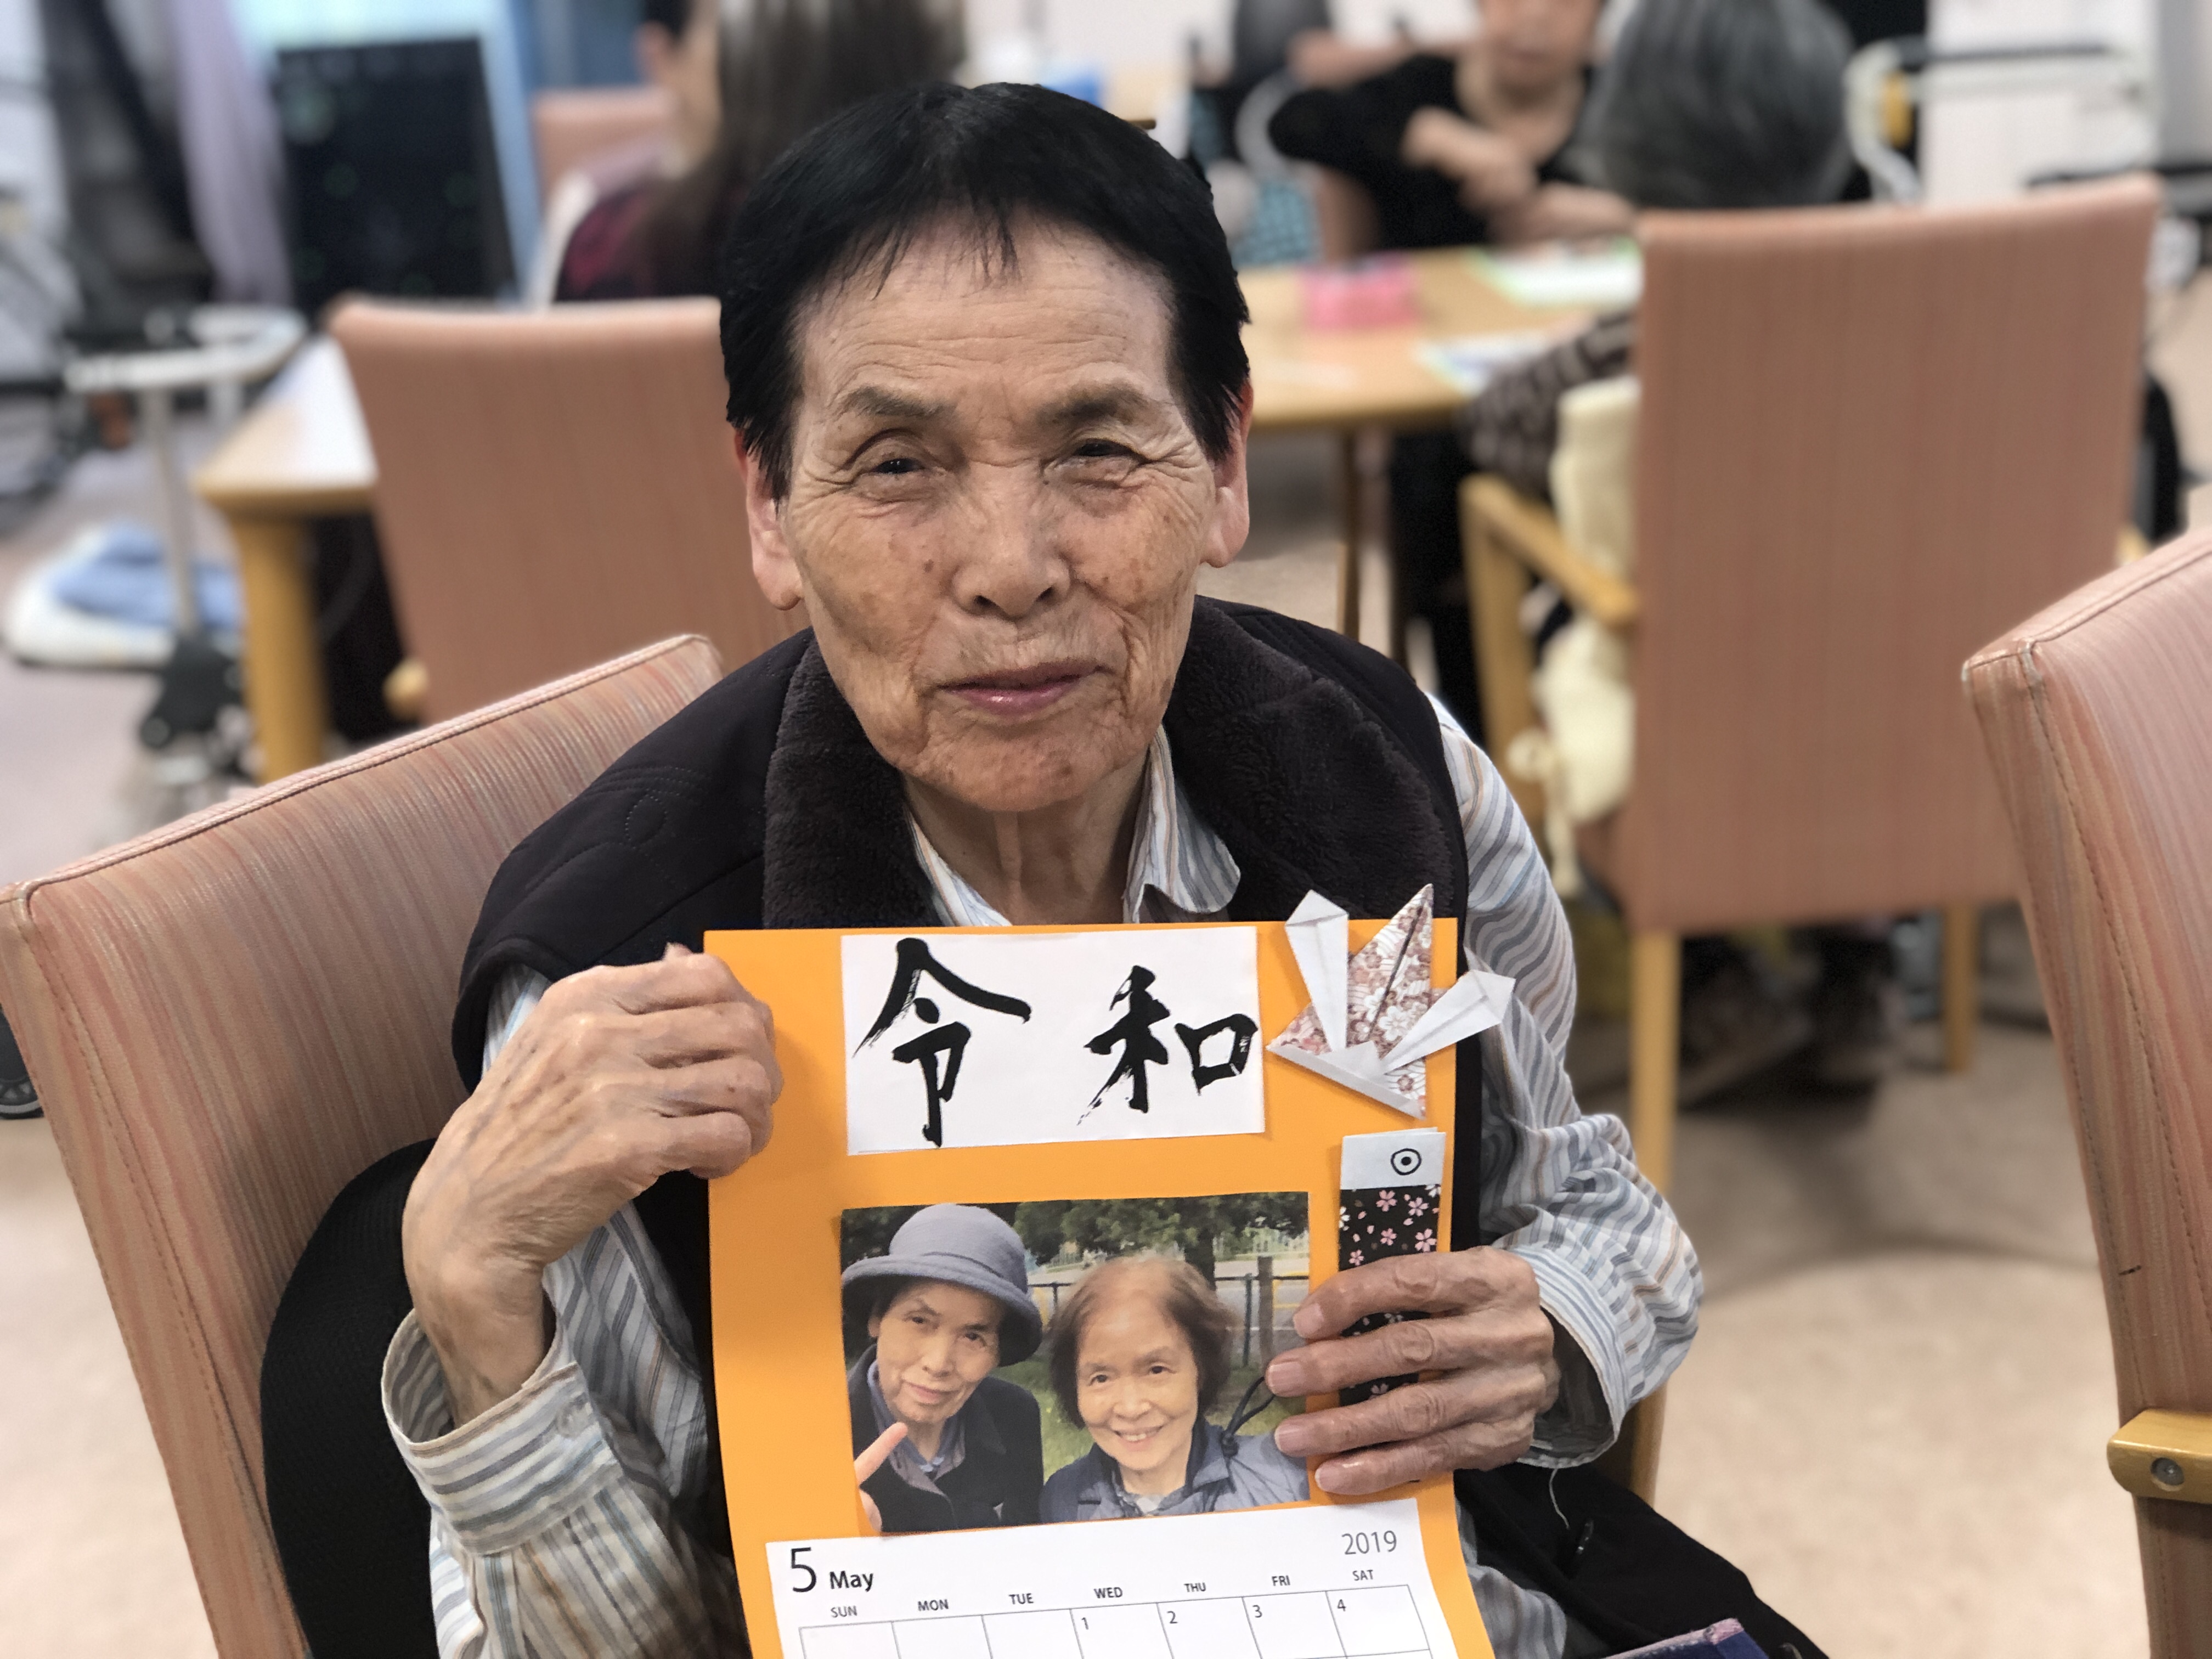 令和
5 May 2019
SUN MON TUE WED THU FRI SAT
1 2 3 4